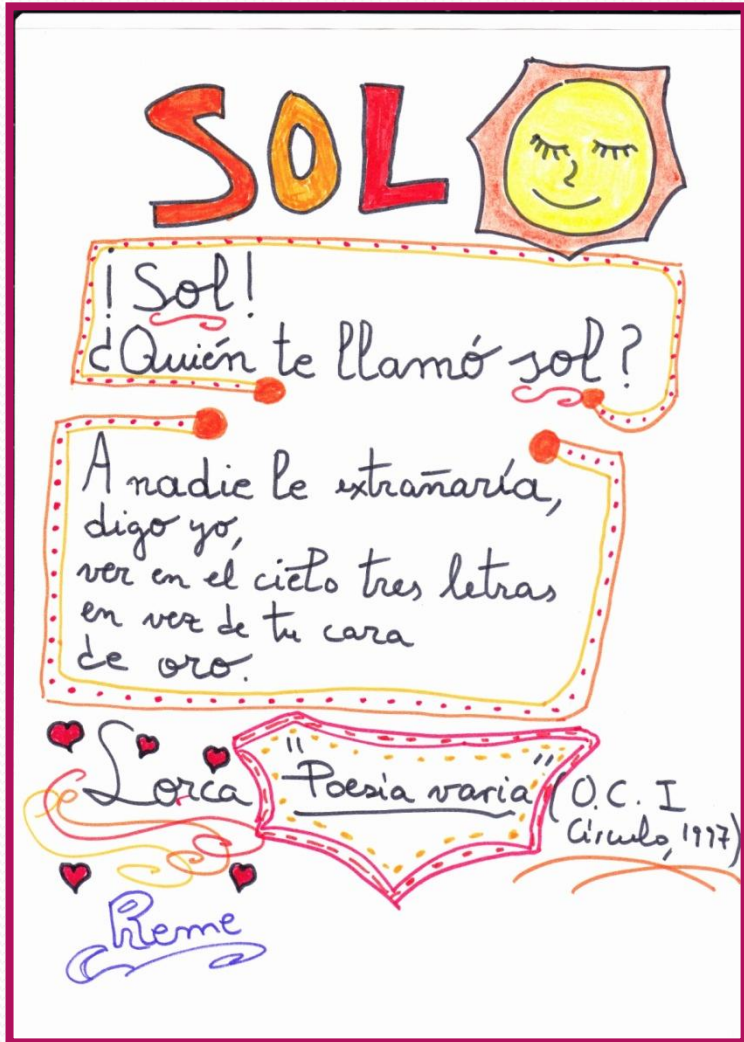 SOL
¡Sol!
¿Quién te llamó sol?
A nadie le extrañaría,
digo yo,
ver en el cielo tres letras
en vez de tu cara
de oro.
Lorca "Poesía varia" (O.C. I
Círculo, 1997)
Reme